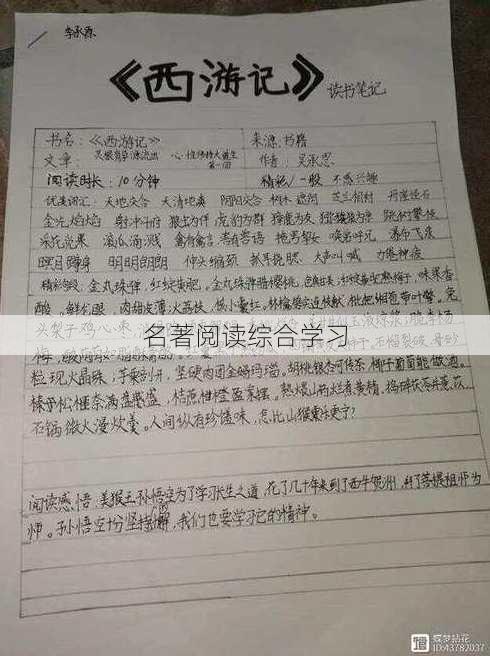 李承霖
《西游记》读书笔记
书名:《西游记》 来源:书籍
文章: 灵根育孕源流出 心性修持大道生 第一回 作者:吴承恩
阅读时长:10分钟 精彩√ 一般 不感兴趣
优美词汇: 天地交合 天清地爽 阴阳交合 树木 遮阿 芝兰相衬 丹崖怪石
金光焰焰 射冲斗府 狼虫为伴 虎豹为群 獐鹿为友 猕猿为亲 跳树攀枝
采花觅果 滴流涓溅 禽有禽言 兽有兽语 拖男挈女 唤弟呼兄 瀑布飞泉
瞑目蹲身 明明朗朗 伸头缩颈 抓耳挠腮 大声叫喊 力倦神疲
精彩句段:金丸珠弹,红绽黄肥。金丸珠弹腊樱桃,色真甘美;红绽黄肥熟梅子,味果香
酸。鲜龙眼 肉甜皮薄;火荔枝,核小囊红。林檎碧实连枝献,枇杷缃苞带叶擎。兔
头梨子鸡心枣,
名著阅读综合学习
粒现火晶珠;芋栗剖开,坚硬肉团金玛瑙。胡桃银杏可传茶,椰子葡萄能做酒。
榛子松榧奈满盘盛,桔蔗柑橙盈案摆。熟煨山药烂煮黄精,捣碎茯苓并薏苡,
石锅微火漫炊羹。人间纵有珍馐味,怎比山猴乐更宁?
阅读感悟:美猴王孙悟空为了学习长生之道,花了几十年来到了西牛贺州,拜了菩提祖师为
师。孙悟空十分坚持不懈,我们也要学习它的精神。
蝶梦拈花
ID:43782037